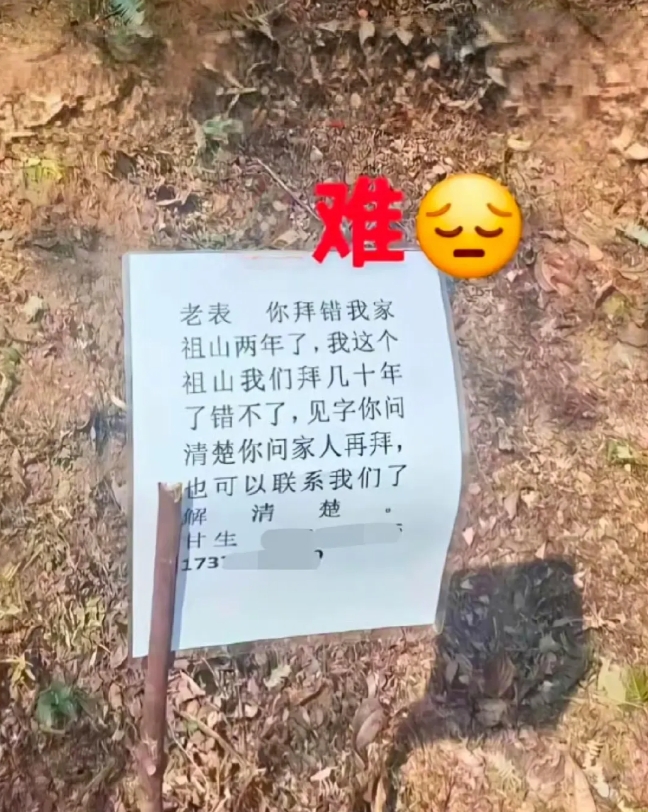 难
老表 你拜错我家
祖山两年了，我这个
祖山我们拜几十年
了错不了，见字你问
清楚你问家人再拜，
也可以联系我们了
解清楚。
甘生
173